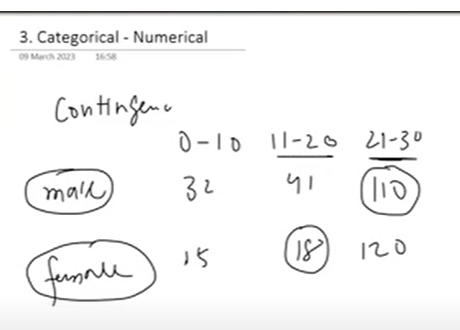 3. Categorical - Numerical
09 March 2023 16:58
Contingenc
0-10 11-20 21-30
male 32 41 110
female 15 18 120